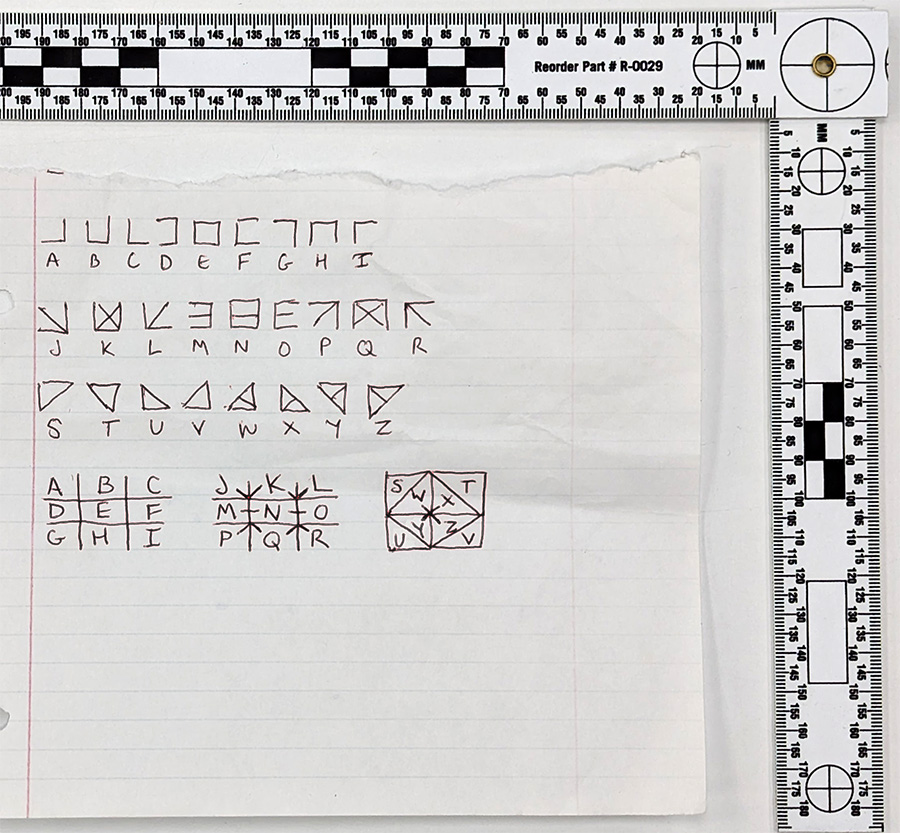 195 190 185 180 175 170 165 160 155 150 145 140 135 130 125 120 115 110 105 100 95 90 85 80 75 70 65 60 55 50 45 40 35 30 25 20 15 10 5
Reorder Part # R-0029 MM
195 190 185 180 175 170 165 160 155 150 145 140 135 130 125 120 115 110 105 100 95 90 85 80 75 70 65 60 55 50 45 40 35 30 25 20 15 10 5
A B C D E F G H I
J K L M N O P Q R
S T U V W X Y Z
A B C J K L S W X T
D E F M N O
G H I P Q R U Y Z V
MM
5 10 15 20 25 30 35 40 45 50 55 60 65 70 75 80 85 90 95 100 105 110 115 120 125 130 135 140 145 150 155 160 165 170 175 180